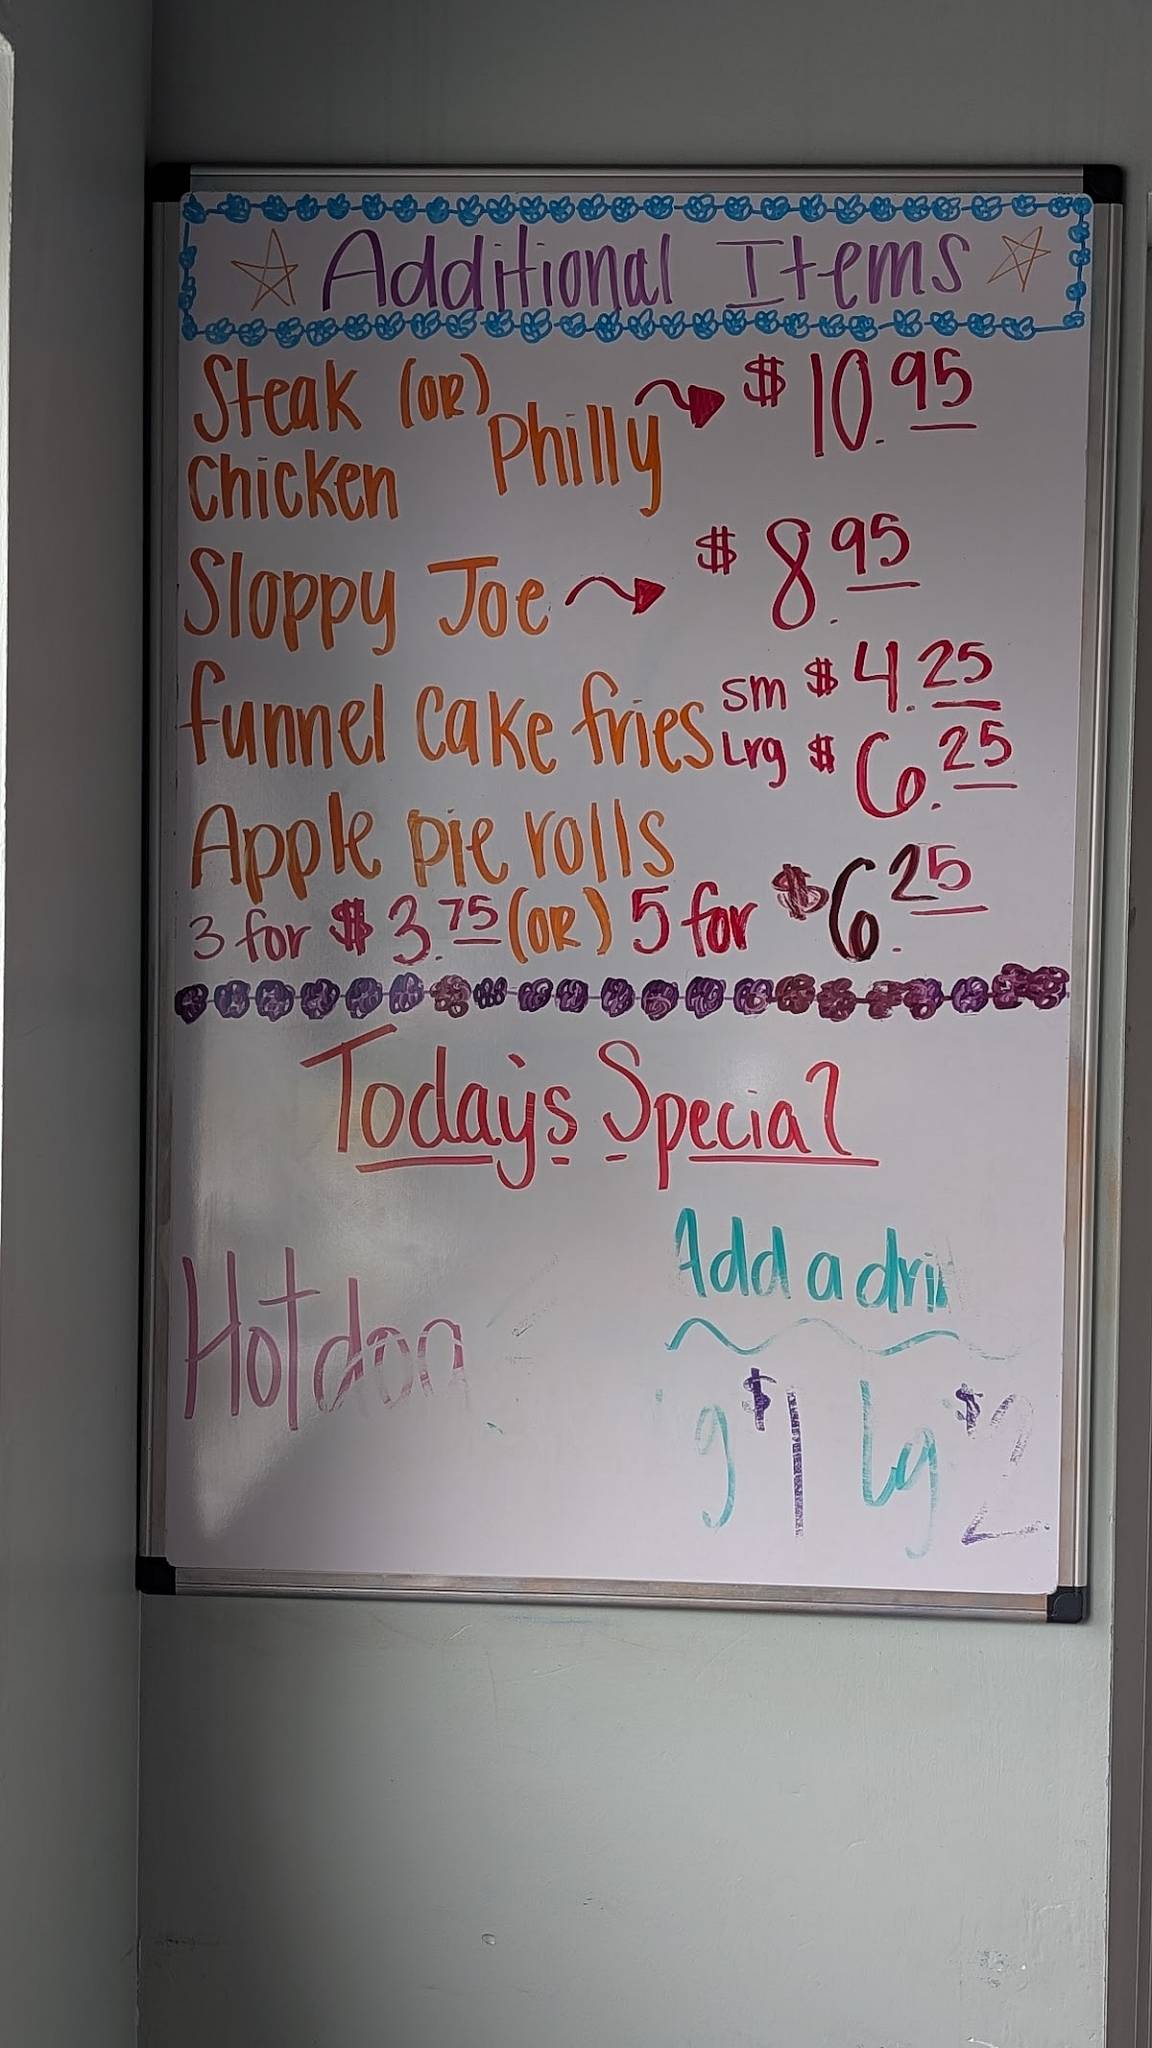 Additional Items
Steak (OR)
Chicken Philly $10.95
Sloppy Joe $8.95
funnel cake fries sm $4.25
Lrg $6.25
Apple pie rolls
3 for $3.75 (OR) 5 for $6.25
Today's Special
Add a dri
Hot dog
g $1 Lg $2